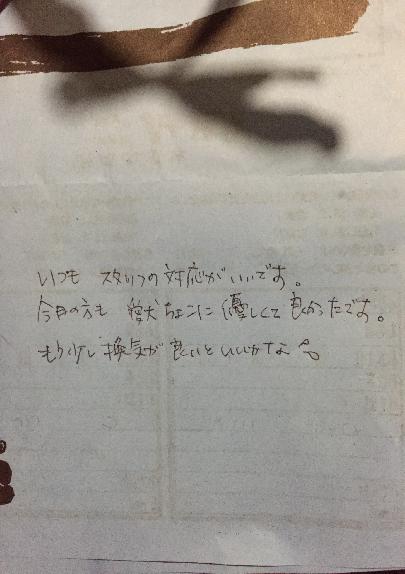 いつも スタッフの対応がいいです。
今日の方も 愛犬ちょこに優しくて良かったです。
もう少し換気が良いといいかな